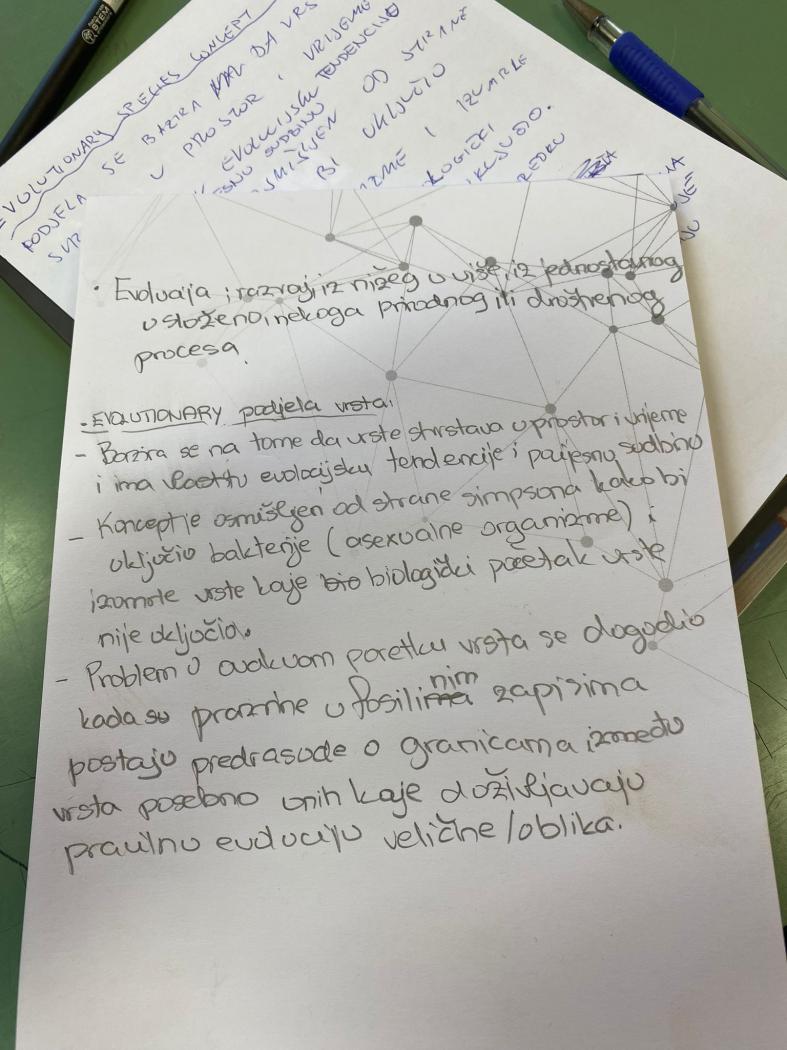 STEM
EVOLUTIONARY SPECIES CONCEPT
PODJELA SE BAZIRA NA DA VRS
U PROSTOR I VRIJEME
EVOLUCIJSKU TENDENCIJU
SUDBINU
OD STRANE
BI UKLJUČIO
I IZUMRLE
• Evolucija, razvoj iz nižeg u više, iz jednostavnog
u složeno, nekoga prirodnog ili društvenog
procesa.
- EVOLUTIONARY podjela vrsta:
- Bazira se na tome da vrste svrstava u prostor i vrijeme
i ima vlastitu evolucijsku tendencije i povijesnu sudbinu
- Koncept je osmišljen od strane simpsona kako bi
uključio bakterije (asexualne organizme) i
izumrle vrste koje bio biologički početak vrste
nije uključio.
- Problem u ovakvom poretku vrsta se dogodio
kada su praznine u fosilnim zapisima
postaju predrasude o granicama između
vrsta posebno onih koje doživljavaju
pravilnu evoluciju veličine/oblika.